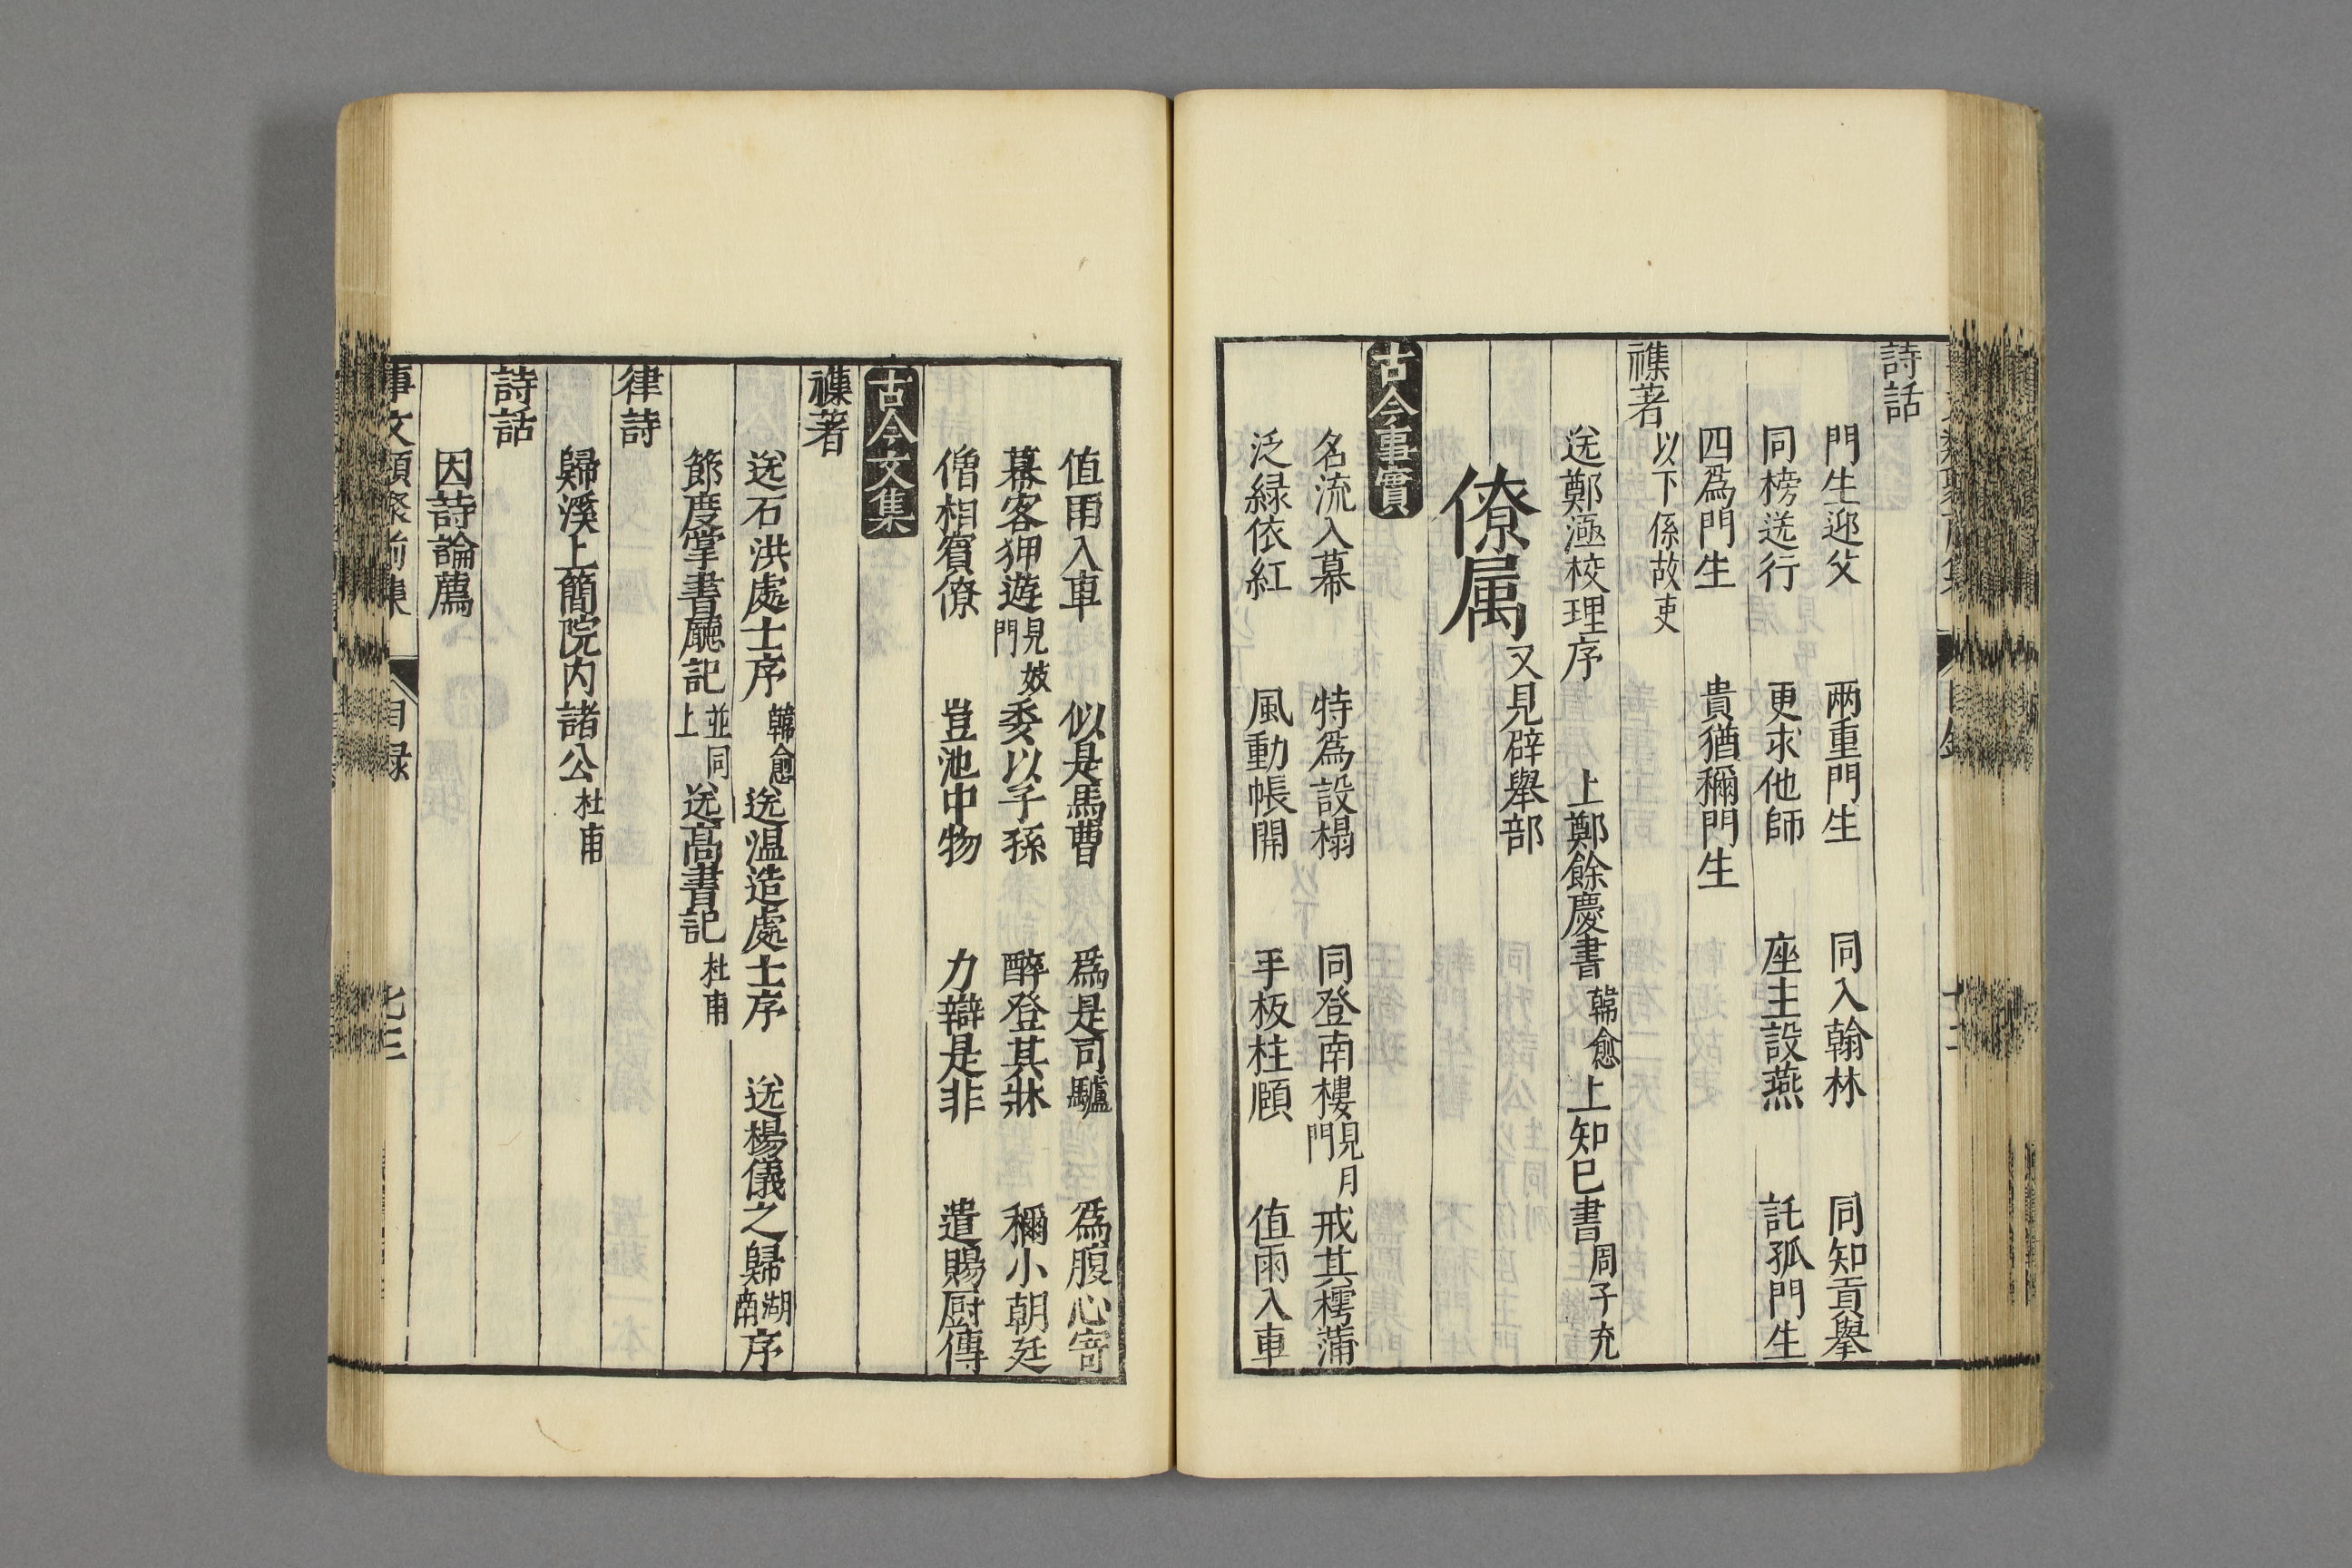 詩話
門生迎父 两重門生 同入翰林 同知貢舉
同榜送行 更求他師 座主設燕 託孤門生
四爲門生 貴猶稱門生
襍著 以下係故吏
送鄭涵校理序 上鄭餘慶書 韓愈 上知已書 周子充
僚属 又見辟舉部
古今事實
名流入幕 特爲設榻 同登南樓 見月門 戒其樗蒲
泛緑依紅 風動帳開 手板柱頤 值雨入車
值雨入車 似是馬曹 爲是司驢 爲腹心寄
幕客狎遊 見妓門 委以子孫 醉登其牀 稱小朝廷
僧相賓僚 豈池中物 力辯是非 遣賜厨傳
古今文集
襍著
送石洪處士序 韓愈 送温造處士序 送楊儀之歸湖南序
節度掌書廳記 並同上 送高書記 杜甫
律詩
歸溪上簡院内諸公 杜甫
詩話
因詩論薦
事文類聚前集 目録 七三